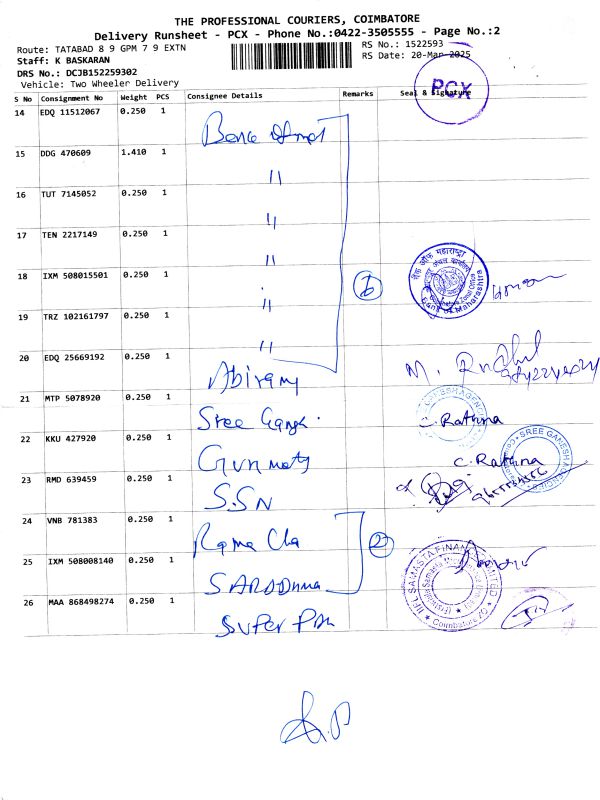 THE PROFESSIONAL COURIERS, COIMBATORE
Delivery Runsheet - PCX - Phone No.:0422-3505555 - Page No.:2
Route: TATABAD 8 9 GPM 7 9 EXTN
RS No.: 1522593
Staff: K BASKARAN
RS Date: 20-Mar-2025
DRS No.: DCJB152259302
Vehicle: Two Wheeler Delivery
PCX
S No Consignment No Weight PCS Consignee Details Remarks Seal & Signature
14 EDQ 11512067 0.250 1
15 DDG 470609 1.410 1 "
16 TUT 7145052 0.250 1 "
17 TEN 2217149 0.250 1 "
18 IXM 508015501 0.250 1 "
6
बैंक ऑफ महाराष्ट्र
Bank of Maharashtra
19 TRZ 102161797 0.250 1 "
20 EDQ 25669192 0.250 1 Abiramy
21 MTP 5078920 0.250 1 Sree Ganga
C. Rathna
22 KKU 427920 0.250 1
C. Rathna
SREE GANESH AGENCIES
23 RMD 639459 0.250 1 S.SN
24 VNB 781383 0.250 1 Rama Cha
2
25 IXM 508008140 0.250 1
IIFL SAMASTA FINANCE LIMITED
Coimbatore
26 MAA 868498274 0.250 1 Super